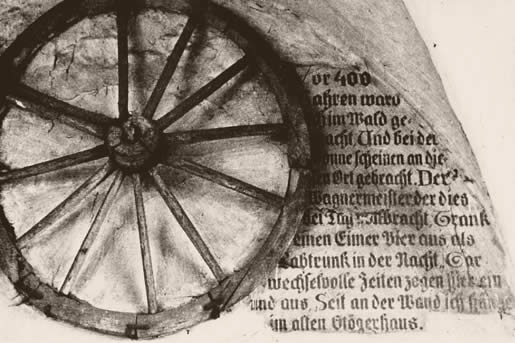 Vor 400
ahren ward
im Wald ge-
acht. Und bei der
onne scheinen an die-
en Ort gebracht. Der
Wagnermeister der dies
bei Tag vollbracht Trank
einen Eimer Bier aus als
Labtrunk in der Nacht. Gar
wechselvolle Zeiten zogen hier ein
und aus, Seit an der Wand ich hänge
im alten Stögerhaus.